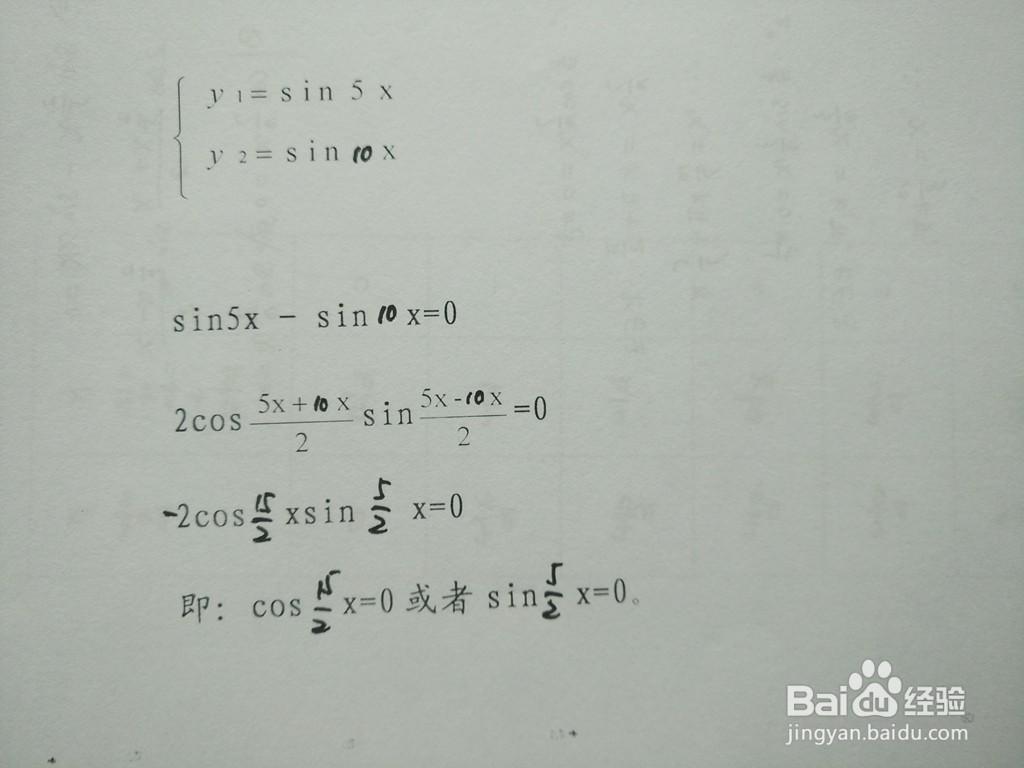 y 1= sin 5 x
y 2= sin 10 x
sin5x - sin 10 x=0
2cos (5x + 10 x)/2 sin (5x - 10 x)/2 =0
-2cos 15/2 xsin 5/2 x=0
即: cos 15/2 x=0 或者 sin 5/2 x=0。
Baidu 经验
jingyan.baidu.com